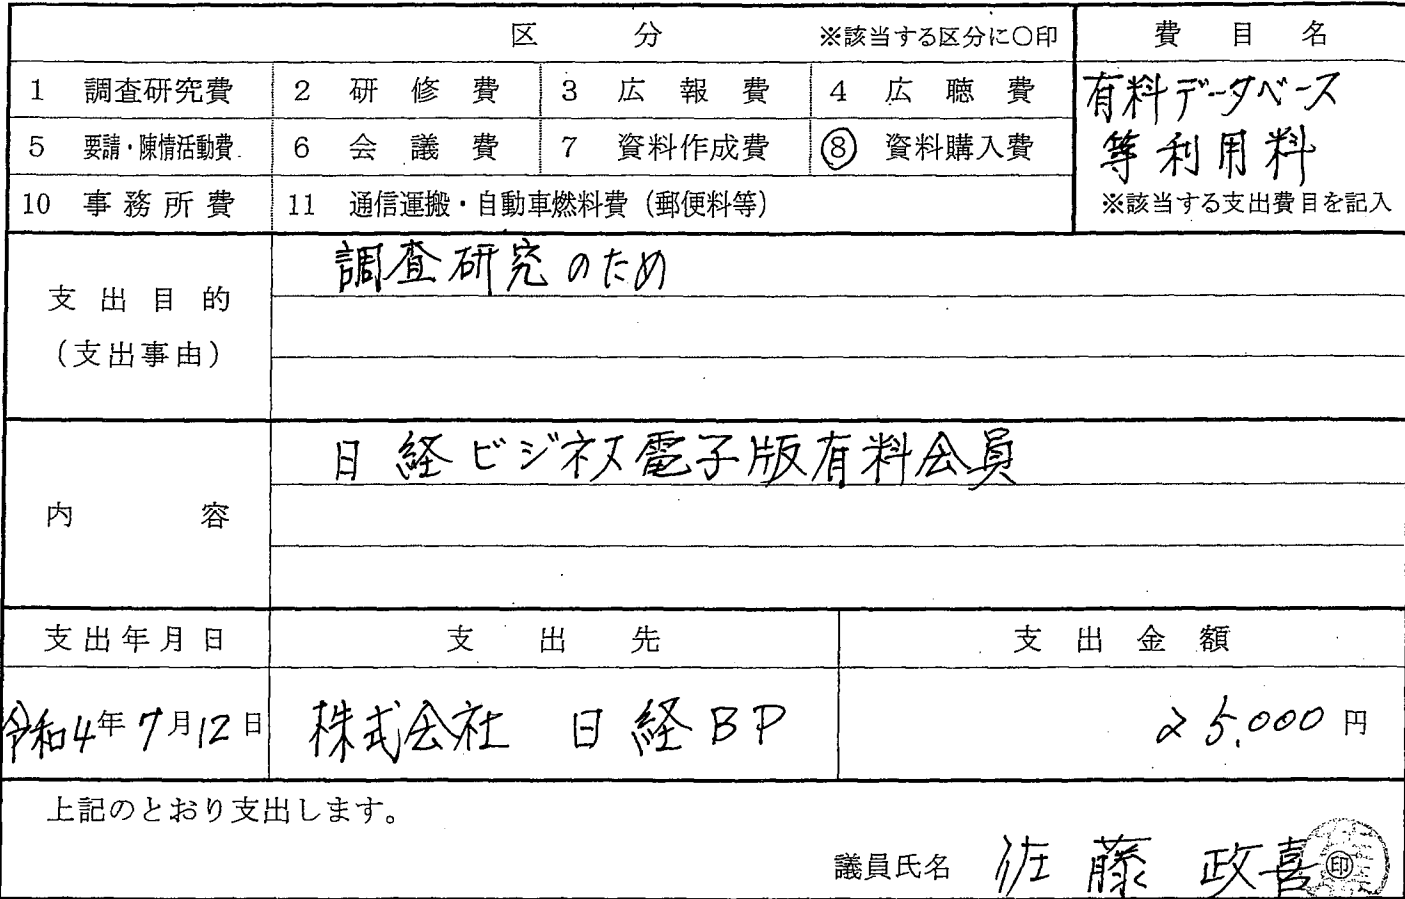 区分 ※該当する区分に○印 費目名
1 調査研究費 2 研修費 3 広報費 4 広聴費
有料データベース
5 要請・陳情活動費 6 会議費 7 資料作成費 ⑧ 資料購入費
等利用料
10 事務所費 11 通信運搬・自動車燃料費(郵便料等)
※該当する支出費目を記入
支出目的
(支出事由)
調査研究のため
内容
日経ビジネス電子版有料会員
支出年月日 支出先 支出金額
令和4年7月12日 株式会社 日経BP 25,000円
上記のとおり支出します。
議員氏名 佐藤 政喜 ㊞